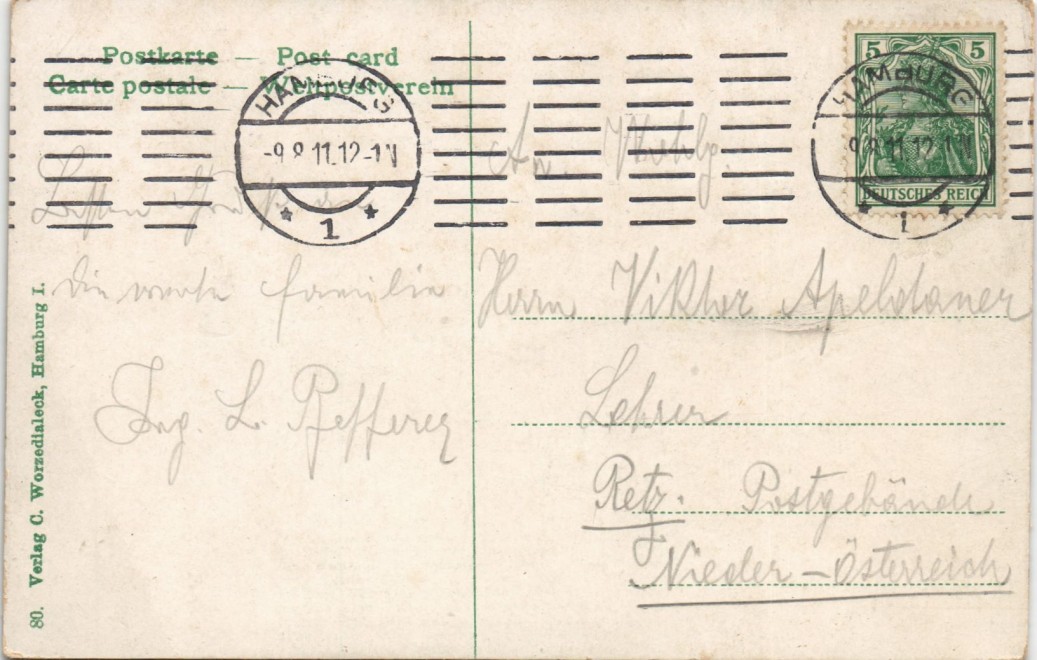 Postkarte — Post card
Carte postale — Weltpostverein
HAMBURG
-9.8.11.12-1 N
1
HAMBURG
9.8.11.12-1 N
1
5 5
DEUTSCHES REICH
An
die werte Familie
Ing. L. Pfefferer
Herrn Viktor
Lehrer
Retz. Postgebäude
Nieder-Österreich
80. Verlag C. Worzedialeck, Hamburg I.